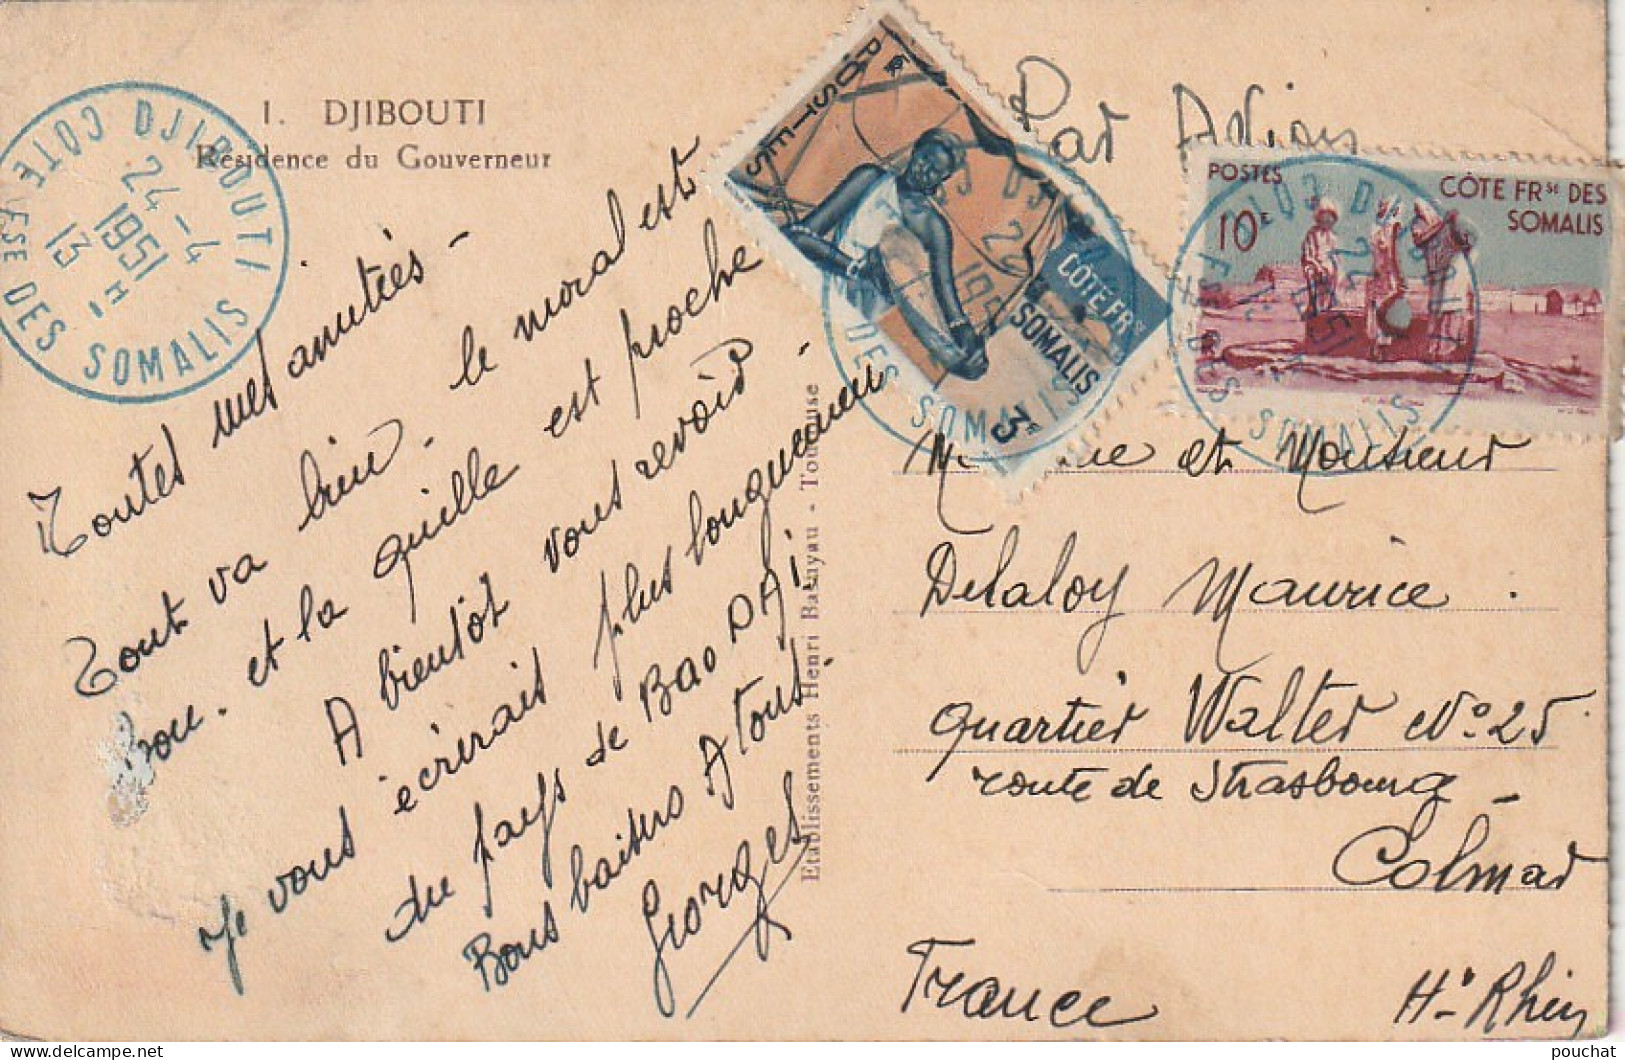 1. DJIBOUTI
Résidence du Gouverneur
DJIBOUTI
24-4
1951
13 H
COTE FSE DES SOMALIS
POSTES
CÔTE FRSE DES
SOMALIS
3F
POSTES
CÔTE FRSE DES
SOMALIS
10F
Par Avion
Toutes mes amitiés -
Tout va bien. le moral est
bon. et la quille est proche
A bientôt vous revoir.
Je vous écrirais plus longuement
du pays de Bao DAÏ
Bons baisers A tous.
Georges
Etablissements Henri Bauyau - Toulouse
et Monsieur
Delaloy Maurice.
quartier Walter No 25.
route de Strasbourg -
Colmar
France
Ht Rhin
pouchat